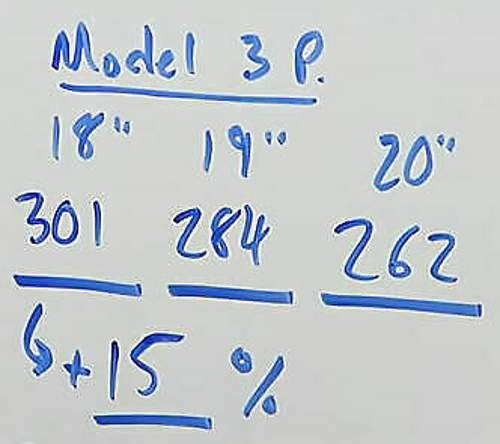 Model 3 P.
18" 19" 20"
301 284 262
↳ +15 %